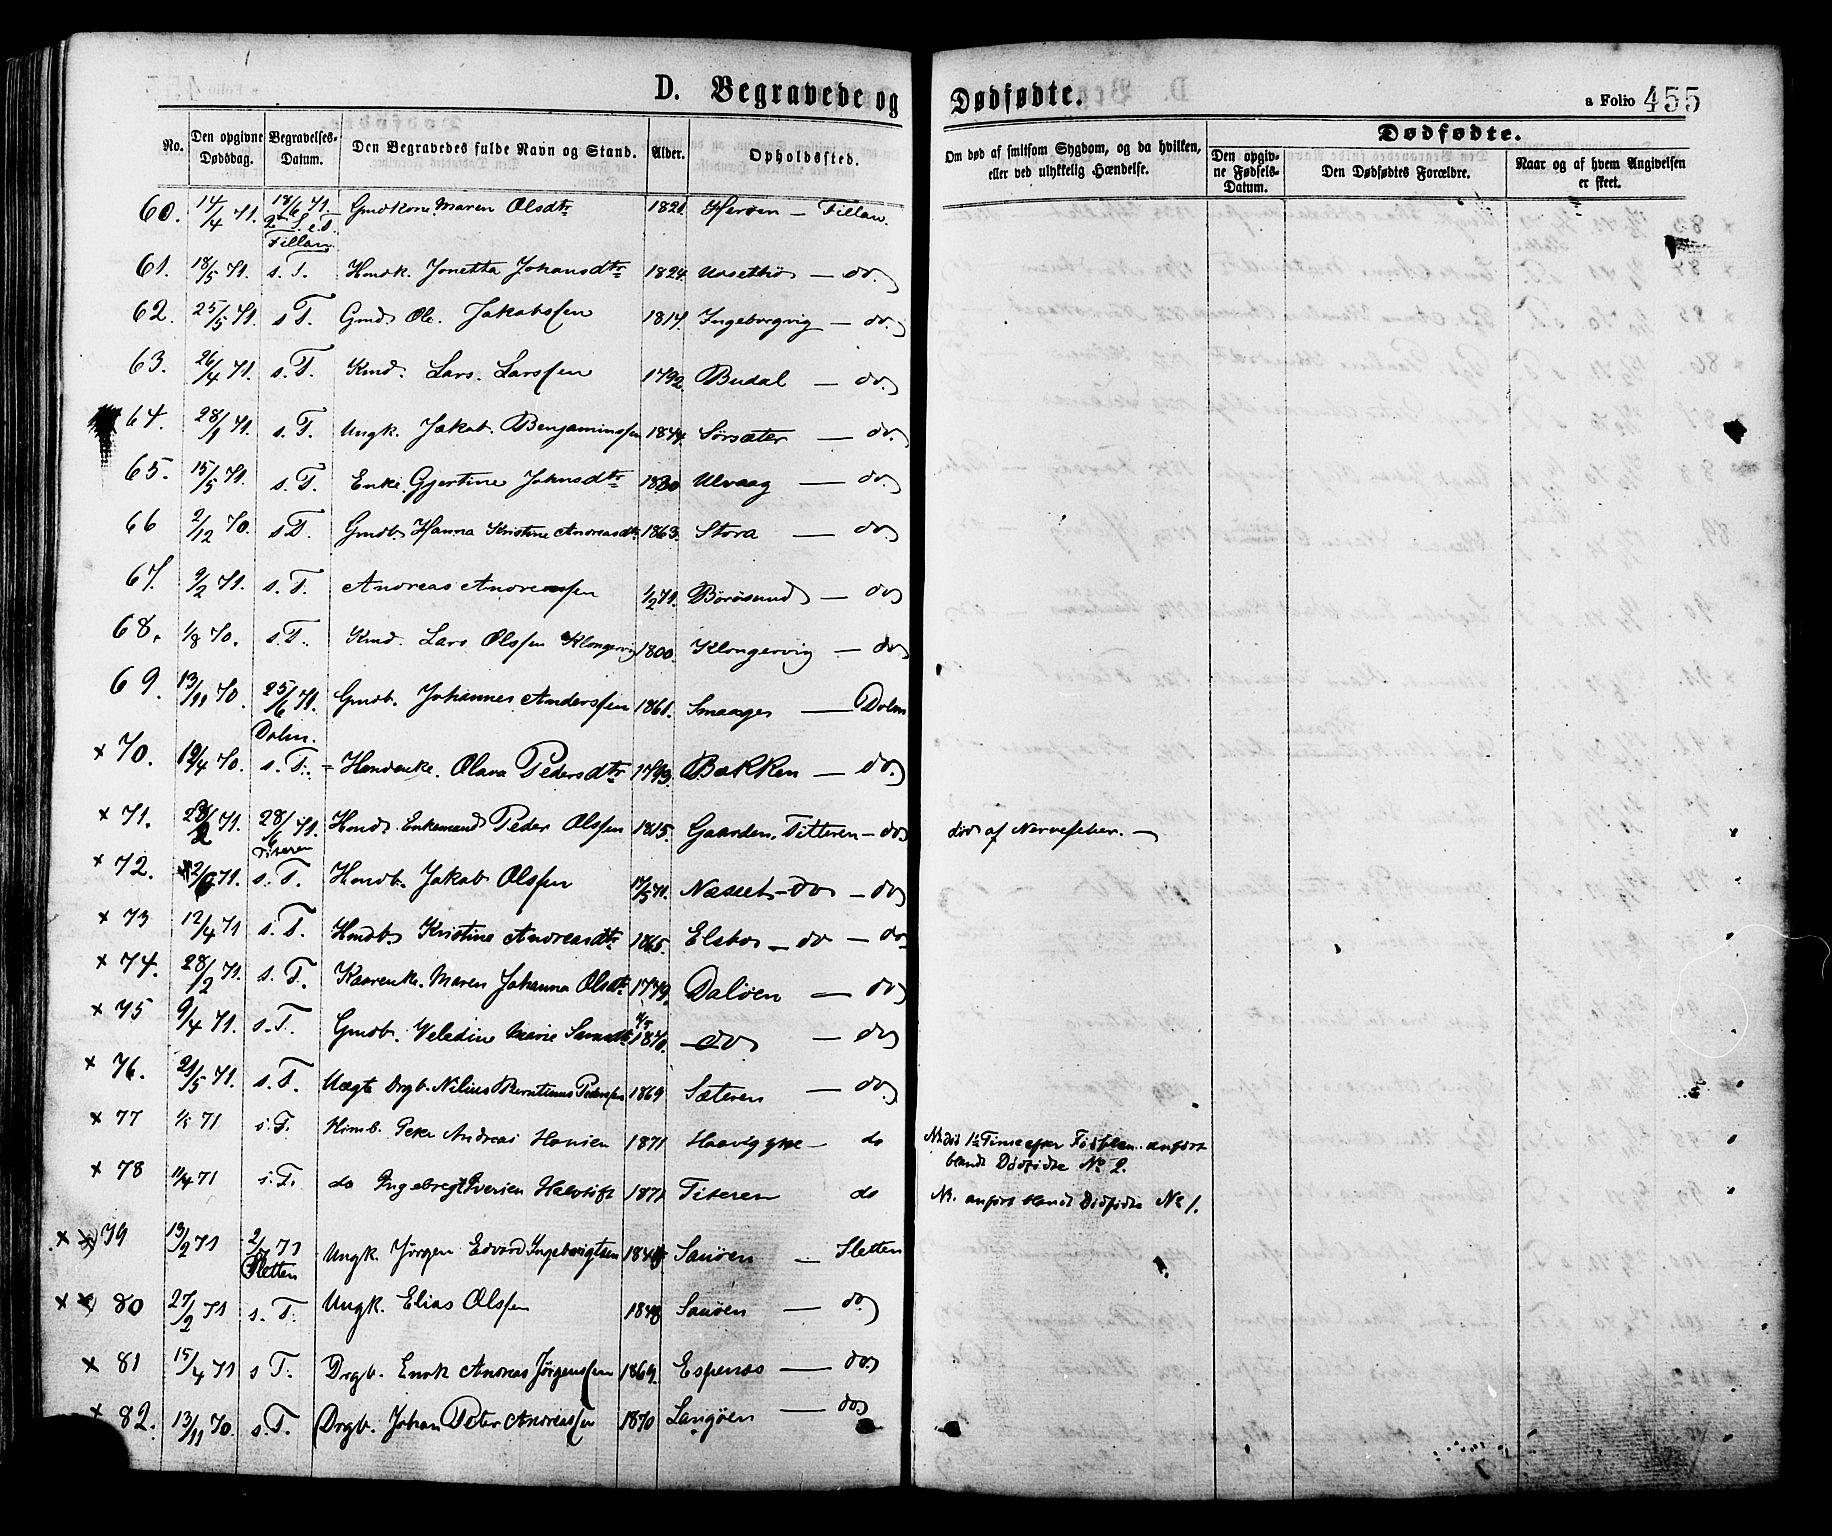 D. Begravede og Dødfødte.
a Folio 455
No. Den opgivne Dødsdag. Begravelses-Datum. Den Begravedes fulde Navn og Stand. Alder. Opholdssted. Om død af smitsom Sygdom, og da hvilken, eller ved ulykkelig Hændelse. Dødfødte. Den opgivne Fødsels-Datum. Den Dødfødtes Forældre. Naar og af hvem Angivelsen er skeet.
60. 14/4 71. 18/6 71. 2 S. e. T. Fillan Gmdkone Maren Olsdtr 1821. Herøen — Fillan.
61. 18/5 71. s. T. Hmdk. Jonetta Johansdtr 1824. — do.
62. 25/5 71. s T. Gmd. Ole Jakobssen 1814. Ingeborgvig — do.
63. 26/4 71. s. T. Kmd. Lars Larssen 1792. Budal — do.
64. 28/1 71. s. T. Ungk. Jakob Benjaminssen 1844. Sørsæter — do.
65. 15/5 71. s. T. Enke Gjertine Johnsdtr 1800 Ulvaag — do
66 2/12 70. s T. Gmdb. Hanna Kristine Andreasdtr 1863. Stora — do
67. 9/2 71. s. T. Andreas Andreassen 1/2 71. Börösund — do
68. 1/8 70. s. T. Kmd. Lars Olssen Klongervig 1800. Klongervig — do
69. 13/11 70. 25/6 71. Dolm. Gmdb. Johannes Anderssen 1861. Smaage — Dolm
x 70. 19/4 70. s. T. Olava Pedersdtr 1793. Bakken — do.
x 71. 71. 28/6 71. Titeren Hmd. Enkemand Peder Olssen 1815. Gaarden, Titteren — do død af Nervefeber. —
x 72. 71. s. T. Hmdb. Jakob Olssen 17/5 71. Næsset — do — do
x 73 12/4 71 s. T. Hmdb. Kristine Andreasdtr 1865. Elsbo — do — do
x 74. 28/2 71. s. T. Kaarenke. Maren Johanna Olsdtr 1779. Daløen — do
x 75 9/4 71. s. T. Gmdb. Veledine Marie 1870. — do — do
x 76. 21/5 71. s. T. Drgb. Nilius Pederssen 1869 Sæteren — do
x 77 71 s. T. Peter Andreas Hansen 1871 — do NB. død 1½ Time efter Fødselen. anført blandt Dødfødte No 2.
x 78 11/4 71 s. T. do Ingebregt Iversen 1871 Titeren do NB. anført blandt Dødfødte No 1.
x x 79 13/2 71 2/7 71 Sletten Ungk. Jørgen Edvard Ingebrigtsen Sauøen — Sletten
x x 80 27/2 71 s. T. Ungk. Elias Olssen 1848 Sauøen — do
x 81 15/4 71 s T. Drgb. Andreas Jørgenssen 1869. Espenæs — do
x 82. 13/11 70. s. T. Drgb. Johan Peter Andreassen 1870 Langøen — do